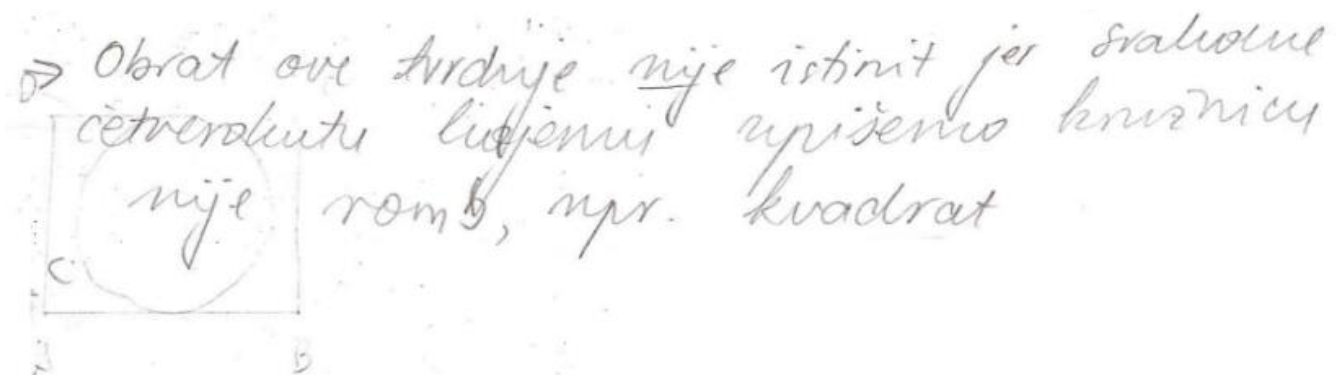 b) Obrat ove tvrdnje nije istinit jer svakome
četverokutu kojemu upišemo kružnicu
nije romb, npr. kvadrat
C
A B